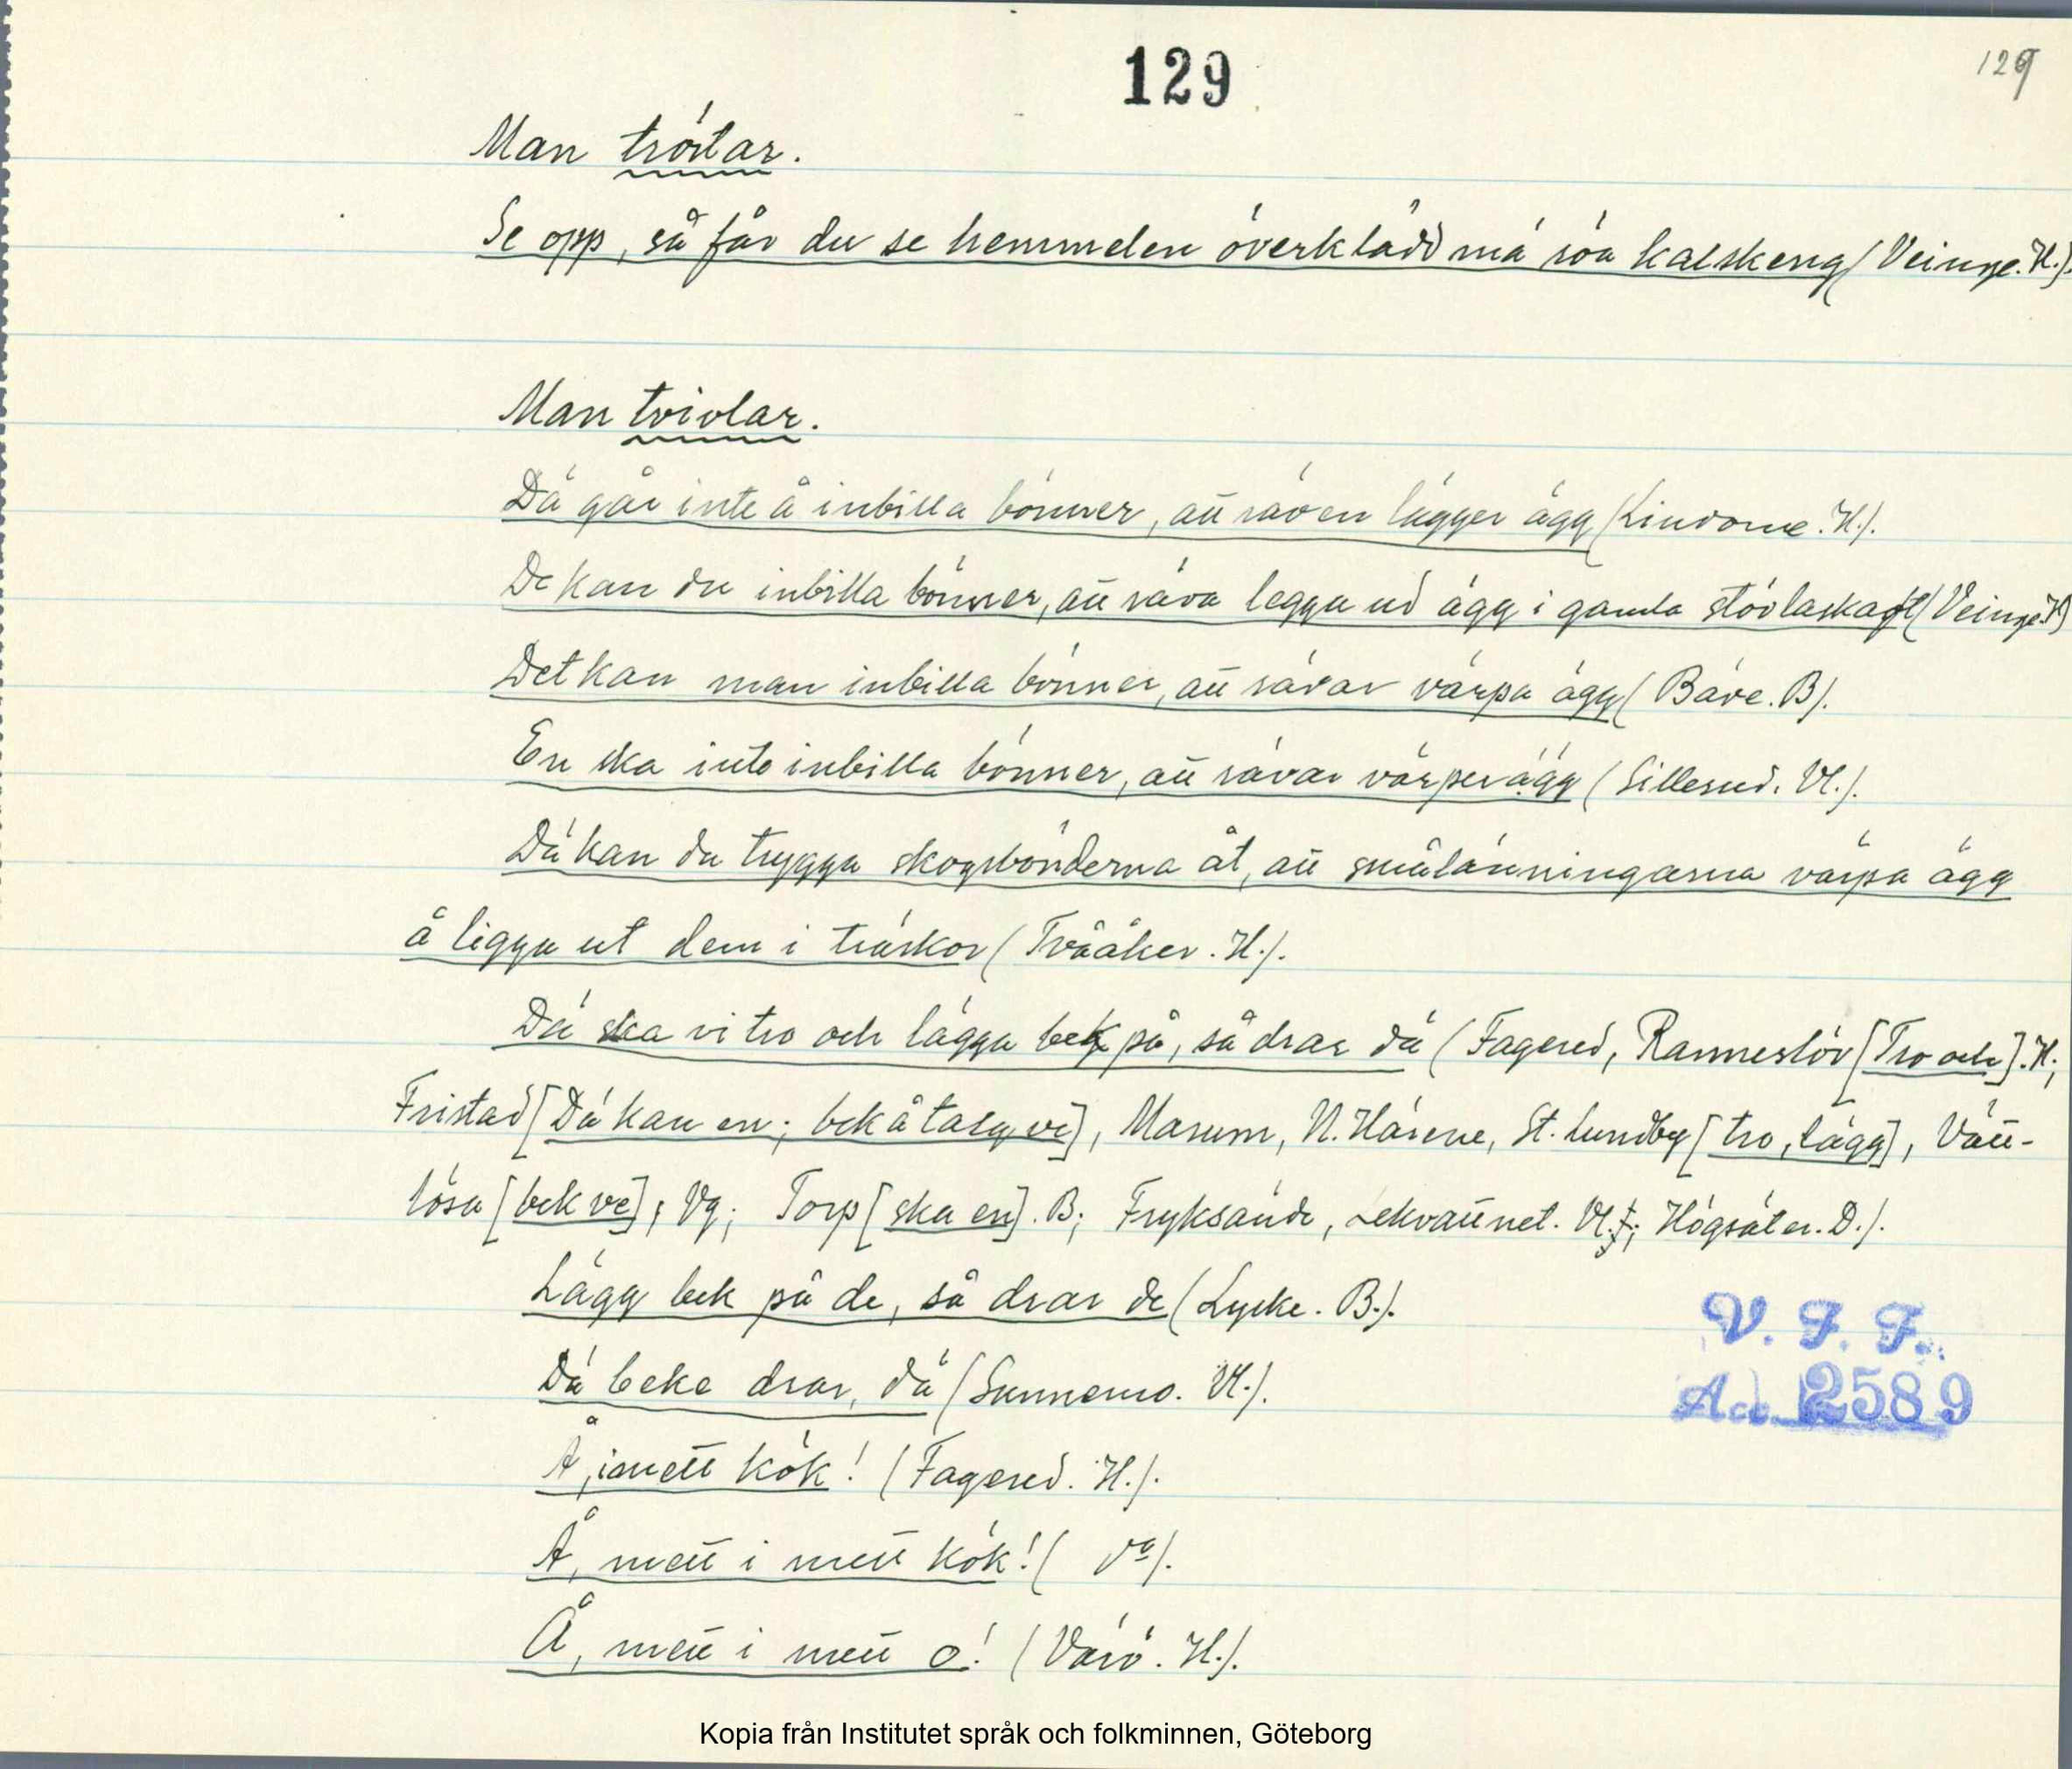 129
129
Man tröstar.
Se opp, så får du se hemmelen överklädd mä röa kalskeng (Veinge. H.).
Man tvivlar.
Dä går inte å inbilla bönner, att räven lägger ägg (Lindome. H.).
De kan du inbilla bönner, att räva legga ud ägg i gamla stövlaskaft (Veinge. H)
Det kan man inbilla bönner, att rävar värpa ägg (Bäve. B).
En ska inte inbilla bönner, att rävar värper ägg (Sillerud. Vl.).
Dä kan du tygga skogsbönderna åt, att smålänningarna värpa ägg
å ligga ut dem i träskor (Tvååker. H.).
Dä ska vi tro och lägga bek på, så drar dä (Fagered, Ranneslöv [Tro och]. H;
Fristad [Dä kan en; bek å talg ve], Marum, N. Härene, St. Lundby [tro, lägg], Vätt-
lösa [bek ve], Vg; Torp [ska en]. B; Fryksände, Lekvattnet. Vl.; Högsäter. D.).
Lägg bek på de, så drar de (Lycke. B.).
Dä beke drar, dä (Sunnemo. Vl.).
Å, i mett kök! (Fagered. H.).
Å, mett i mett kök! ( do).
Å, mett i mett o! (Värö. H.).
V. F. F.
Acc. 2589
Kopia från Institutet språk och folkminnen, Göteborg